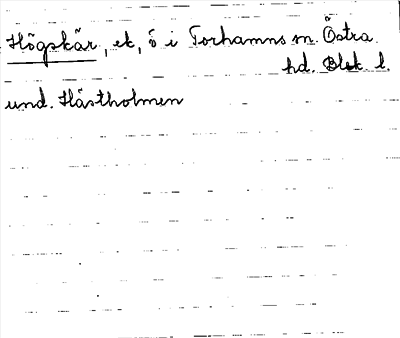 Högskär, ek, ö i Torhamns sn. Östra
hd. Blek l.
und. Hästholmen